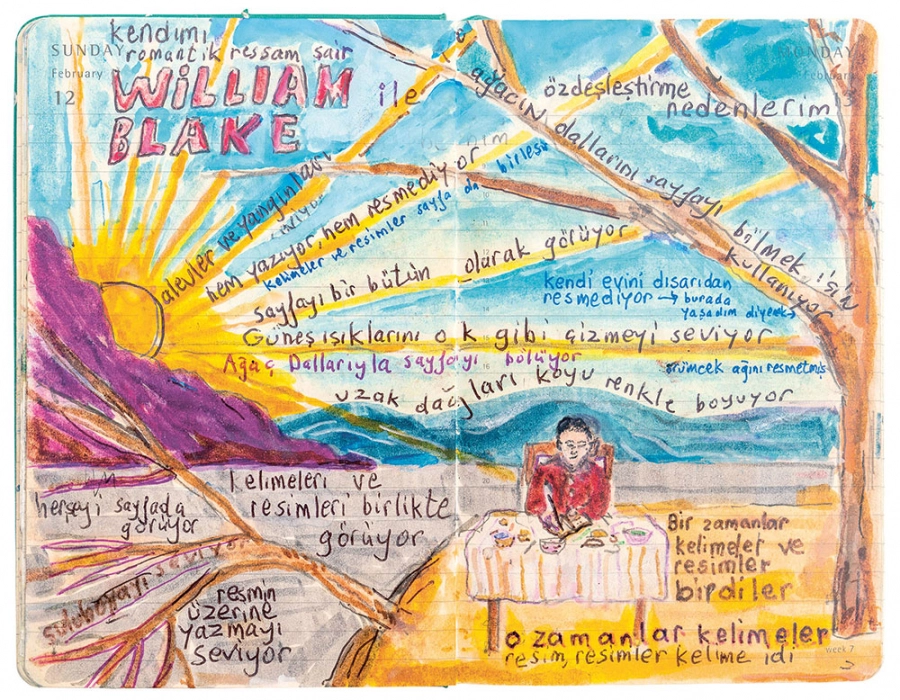 kendimi
SUNDAY
romantik ressam şair
February
12
WiLLiAM
BLAKE
ile
özdeşleştirme
nedenlerim
ağacın dallarını sayfayı
bölmek için
kullanıyor
alevler ve yangınları
hem yazıyor, hem resmediyor
kelimeler ve resimler sayfa da birleşi
sayfayı bir bütün olarak görüyor
kendi evini dışarıdan
resmediyor → burada
yaşadım diyerek
Güneş ışıklarını ok gibi çizmeyi seviyor
Ağaç Dallarıyla sayfayı bölüyor
örümcek ağını resmetmiş
uzak dağları koyu renkle boyuyor
herşeyi sayfada
görüyor
kelimeleri ve
resimleri birlikte
görüyor
suluboyayı seviyor
resmin
üzerine
yazmayı
seviyor
Bir zamanlar
kelimeler ve
resimler
birdiler
o zamanlar kelimeler
resim, resimler kelime idi
week 7